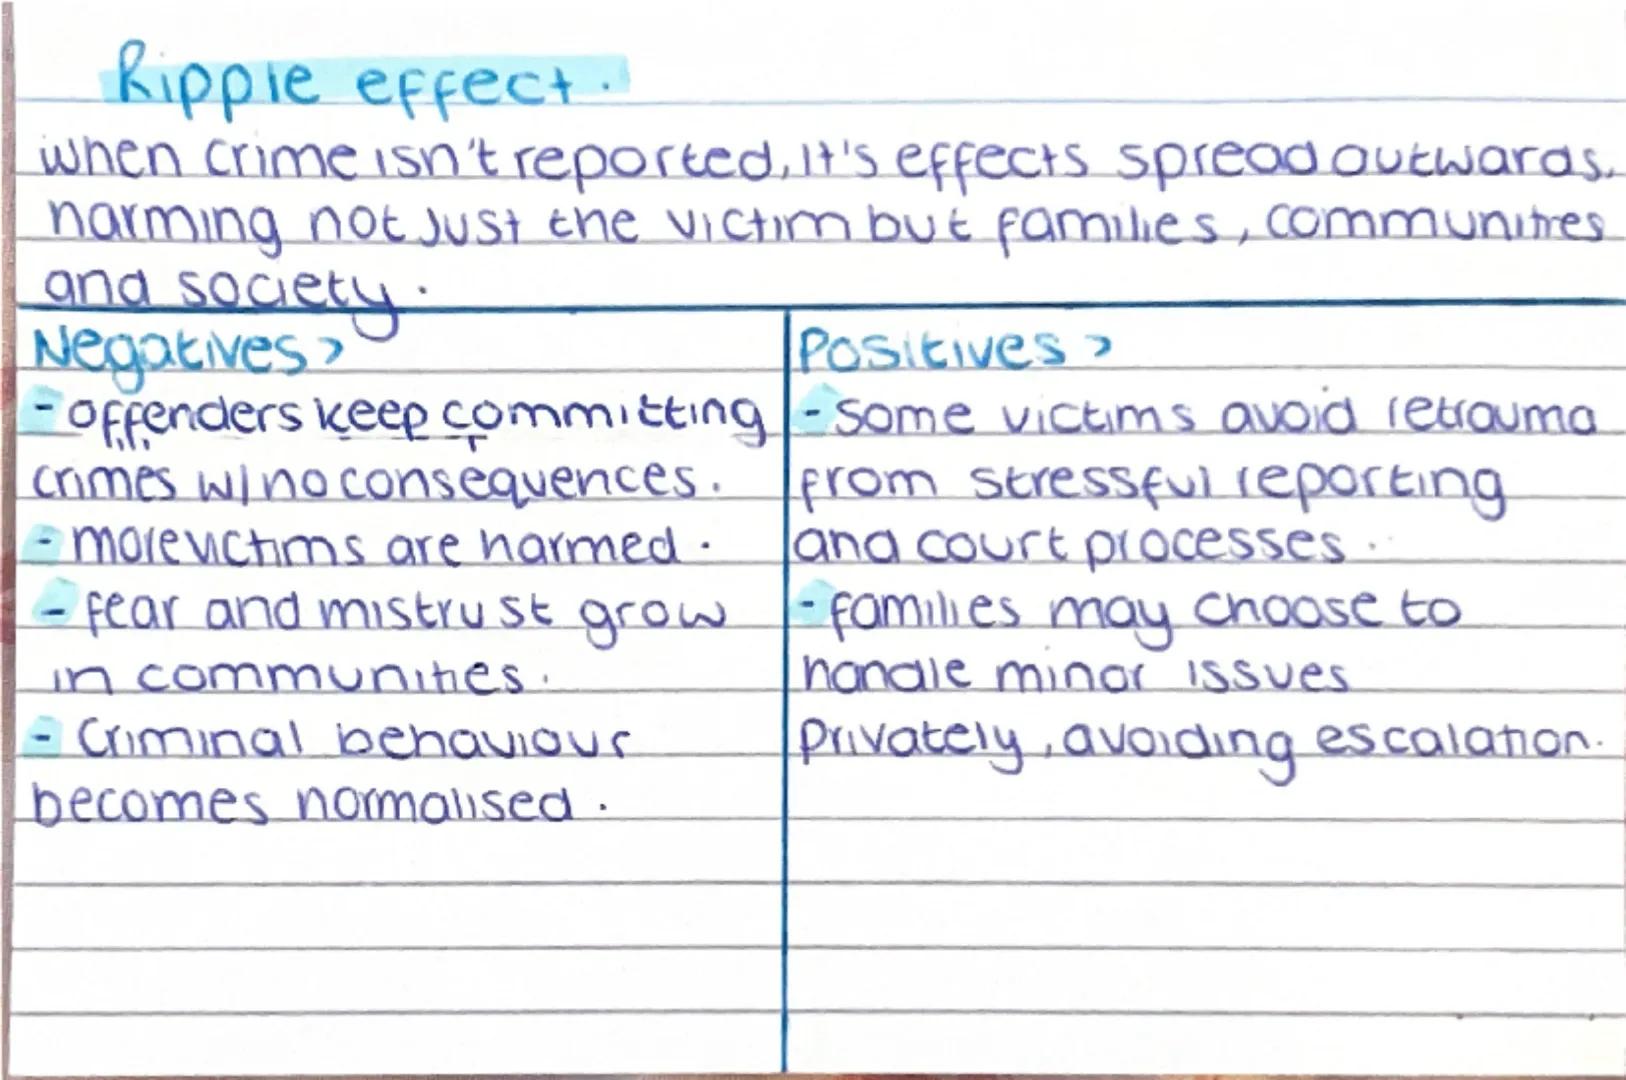 Ripple effect.
when crime isn't reported, it's effects spread outwards,
harming not just the victim but families, communities
and society.
Negatives >
- offenders keep committing
crimes w/ no consequences.
- more victims are harmed.
- fear and mistrust grow
in communities.
- Criminal behaviour
becomes normalised.
Positives >
- some victims avoid retrauma
from stressful reporting
and court processes.
- families may choose to
handle minor issues
privately, avoiding escalation.